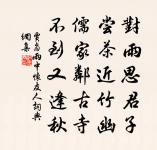 對雨思君子
嘗茶近竹幽
儒家鄰古寺
不到又逢秋
賈島雨中懷友人詞典
網集